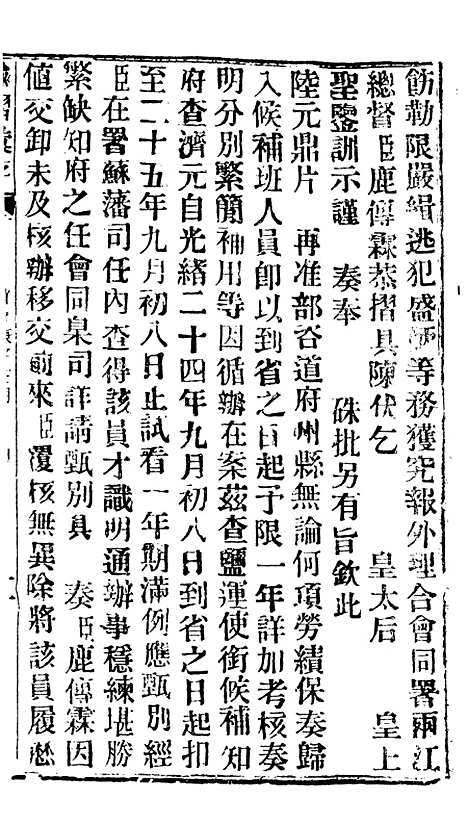 飭勒限嚴緝逃犯盛炳等務獲究報外理合會同署兩江
總督臣鹿傳霖恭摺具陳伏乞　　皇太后　　皇上
聖鑒訓示謹　奏奉　　硃批另有旨欽此
陸元鼎片　再准部咨道府州縣無論何項勞績保奏歸
入候補班人員卽以到省之日起予限一年詳加考核奏
明分別繁簡補用等因循辦在案茲查鹽運使銜候補知
府查濟元自光緒二十四年九月初八日到省之日起扣
至二十五年九月初八日止試看一年期滿例應甄別經
臣在署蘇藩司任內查得該員才識明通辦事穩練堪勝
繁缺知府之任會同臬司詳請甄別具　奏臣鹿傳霖因
値交卸未及核辦移交前來臣覆核無異除將該員履歷